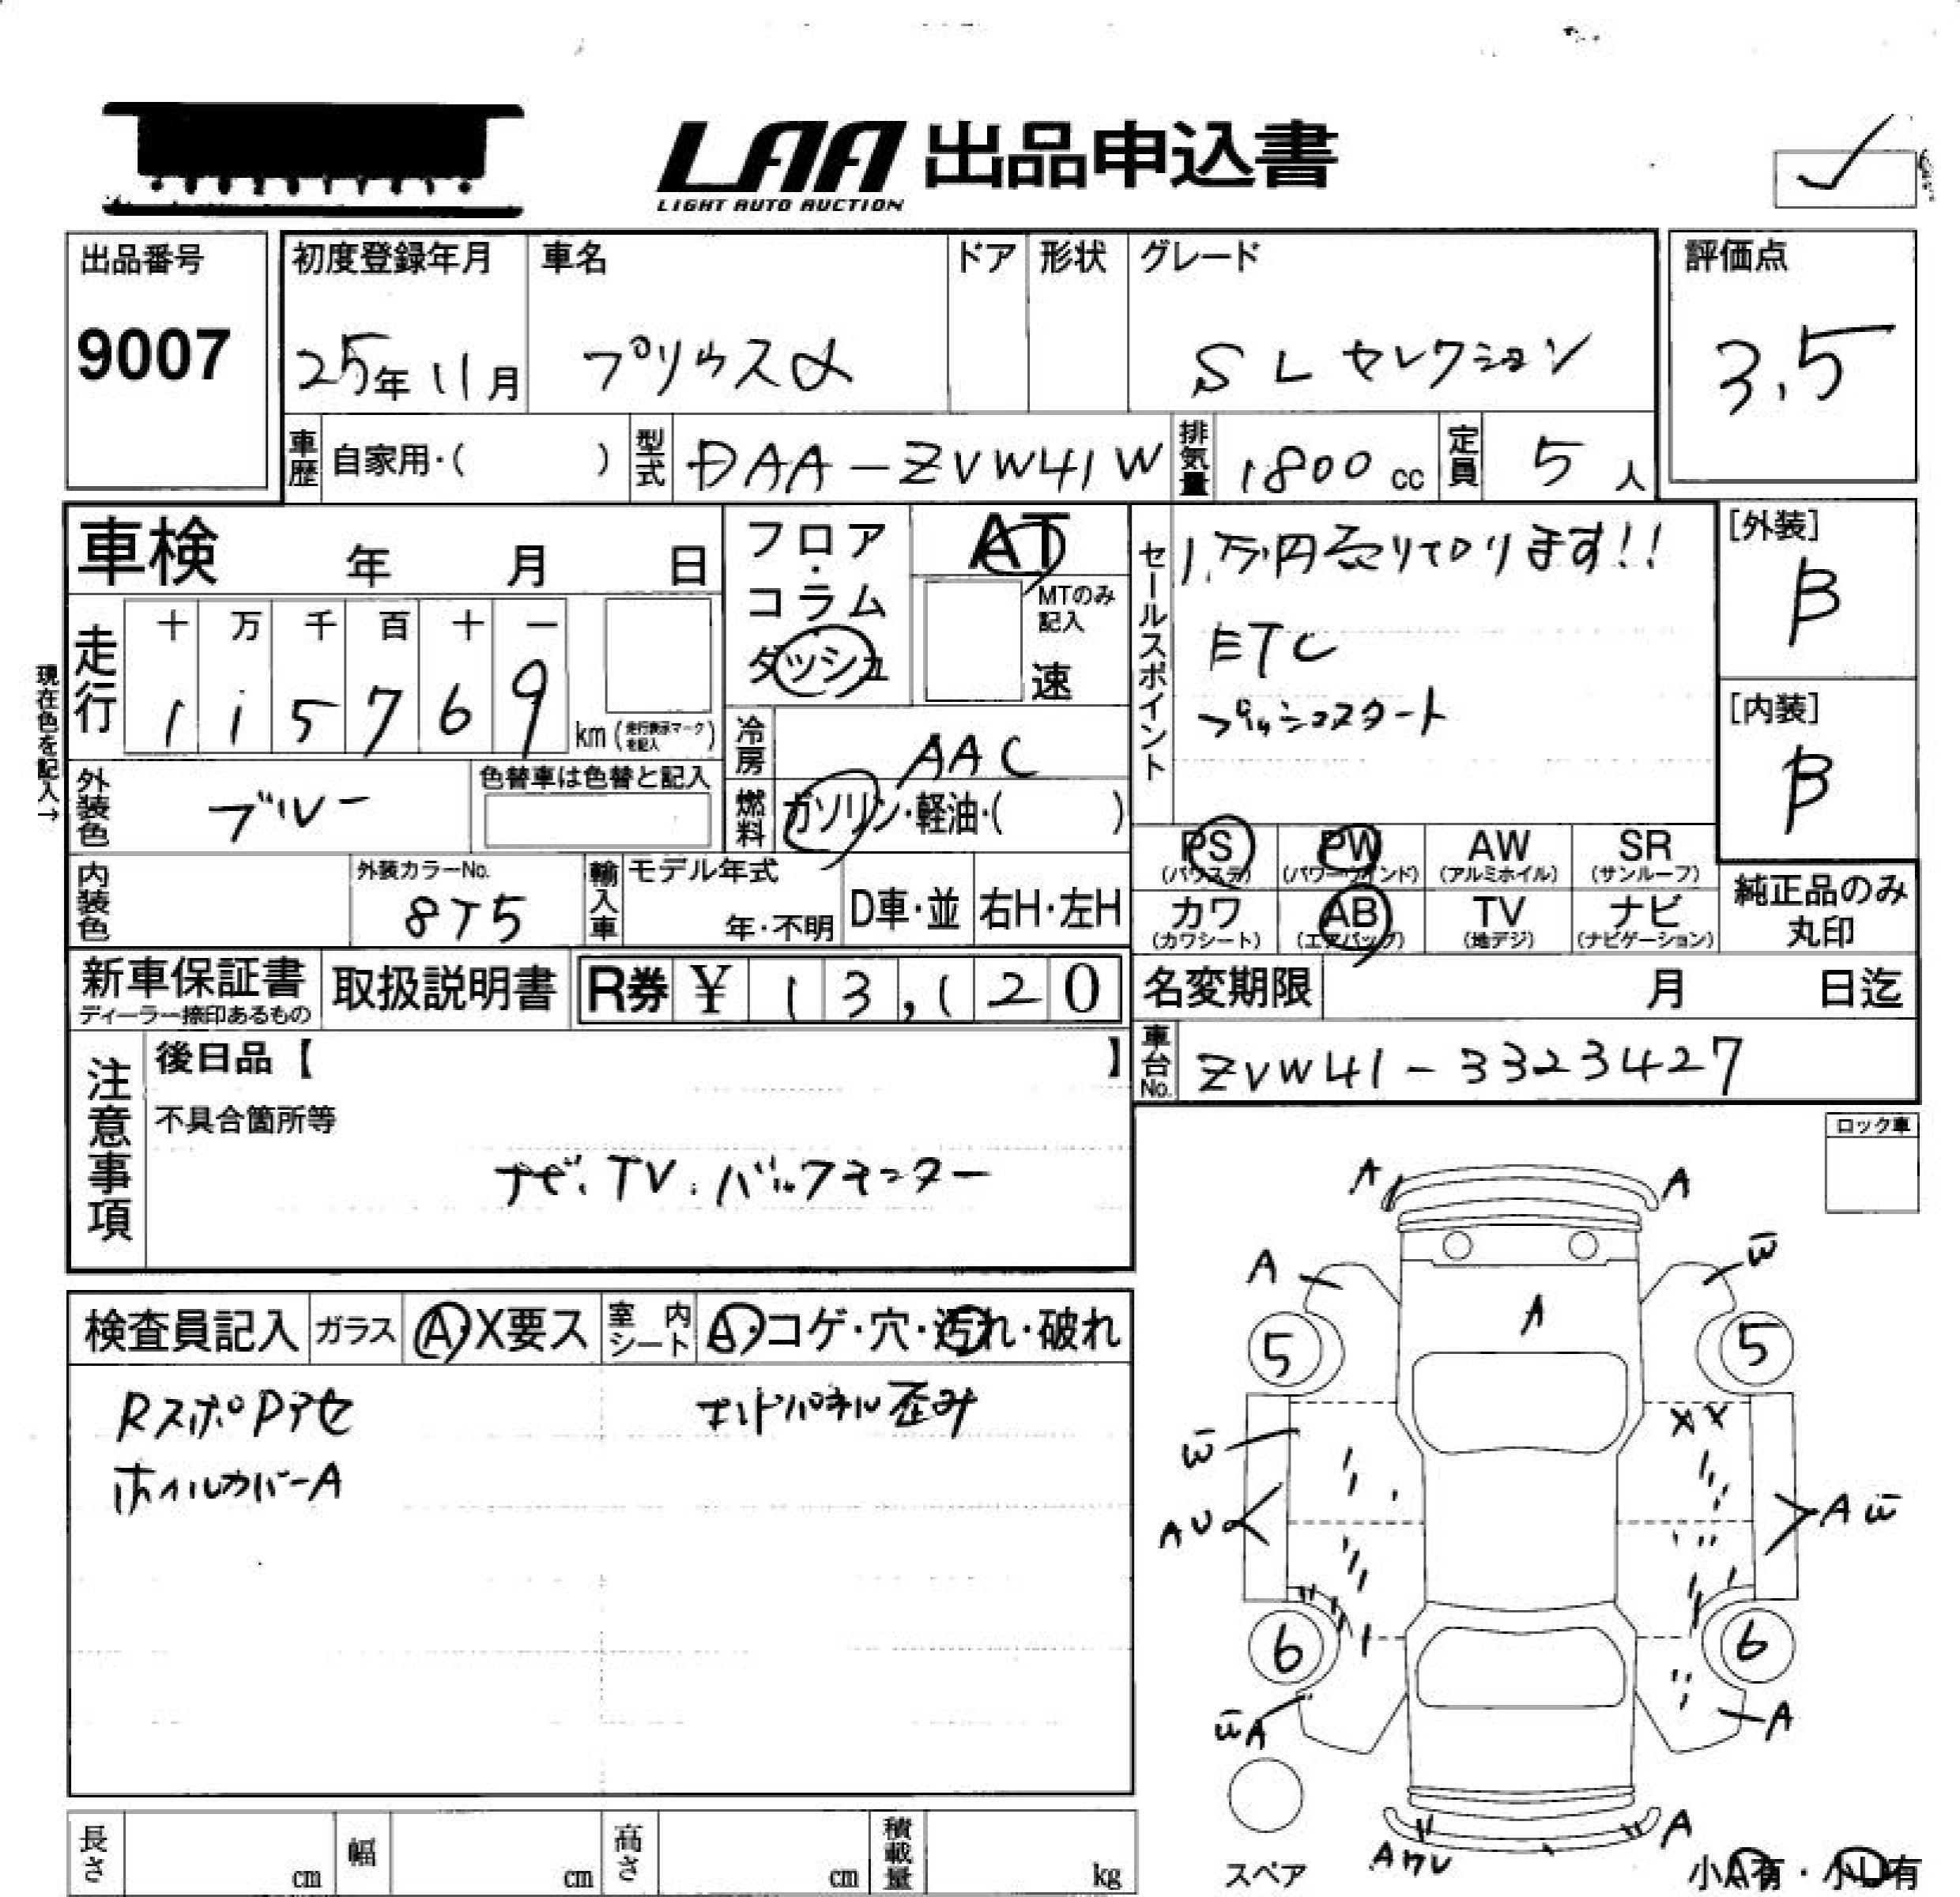 LAA 出品申込書
LIGHT AUTO AUCTION
出品番号
9007
初度登録年月
25年11月
車名
プリウスα
ドア
形状
グレード
SLセレクション
評価点
3.5
車歴
自家用・( )
型式
DAA-ZVW41W
排気量
1800cc
定員
5人
車検 年 月 日
フロア・コラム
ダッシュ
AT
MTのみ記入
速
セールスポイント
1万円売り切ります!!
ETC
プッシュスタート
[外装]
B
[内装]
B
現在色を記入→
走行
十 万 千 百 十 一
1 1 5 7 6 9
km(走行表示マークを記入)
冷房
AAC
燃料
ガソリン・軽油・( )
外装色
ブルー
色替車は色替と記入
内装色
外装カラーNo.
8T5
輸入車
モデル年式
年・不明
D車・並
右H・左H
PS
(パワステ)
PW
(パワーウインド)
AW
(アルミホイル)
SR
(サンルーフ)
カワ
(カワシート)
AB
(エアバッグ)
TV
(地デジ)
ナビ
(ナビゲーション)
純正品のみ
丸印
新車保証書
ディーラー捺印あるもの
取扱説明書
R券 ¥ 13,120
名変期限 月 日迄
車台No.
ZVW41-3323427
注意事項
後日品【 】
不具合箇所等
ナビ.TV.バックモニター
ロック車
検査員記入
ガラス
A・X要ス
室内シート
A・コゲ・穴・汚れ・破れ
RスポPアセ
エンドパネル歪み
ホイルカバーA
A A
A W
A
5 5
W XX
AU AW
6 6
WA A
A
Aワレ
スペア
小A有・小U有
長さ cm
幅 cm
高さ cm
積載量 kg